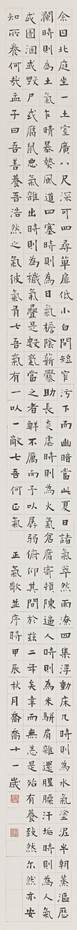 余囚北庭坐一土室廣八尺深可四尋單扉低小白間短窄污下而幽暗當此夏日諸氣萃然雨潦四集浮動床几時則為水氣塗泥半朝蒸漚歷
瀾時則為土氣乍晴暴熱風道四塞時則為日氣簷陰薪爨助長炎虐時則為火氣倉腐寄頓陳陳逼人時則為米氣駢肩雜遝腥臊汗垢時則為人氣
或圊溷或毀尸或腐鼠惡氣雜出時則為穢氣疊是數氣當之者鮮不為厲而予以孱弱俯仰其間於茲二年矣幸而無恙是殆有養致然爾然亦安
知所養何哉孟子曰吾善養吾浩然之氣彼氣有七吾氣有一以一敵七吾何 正氣歌並序時甲辰秋月 十一歲